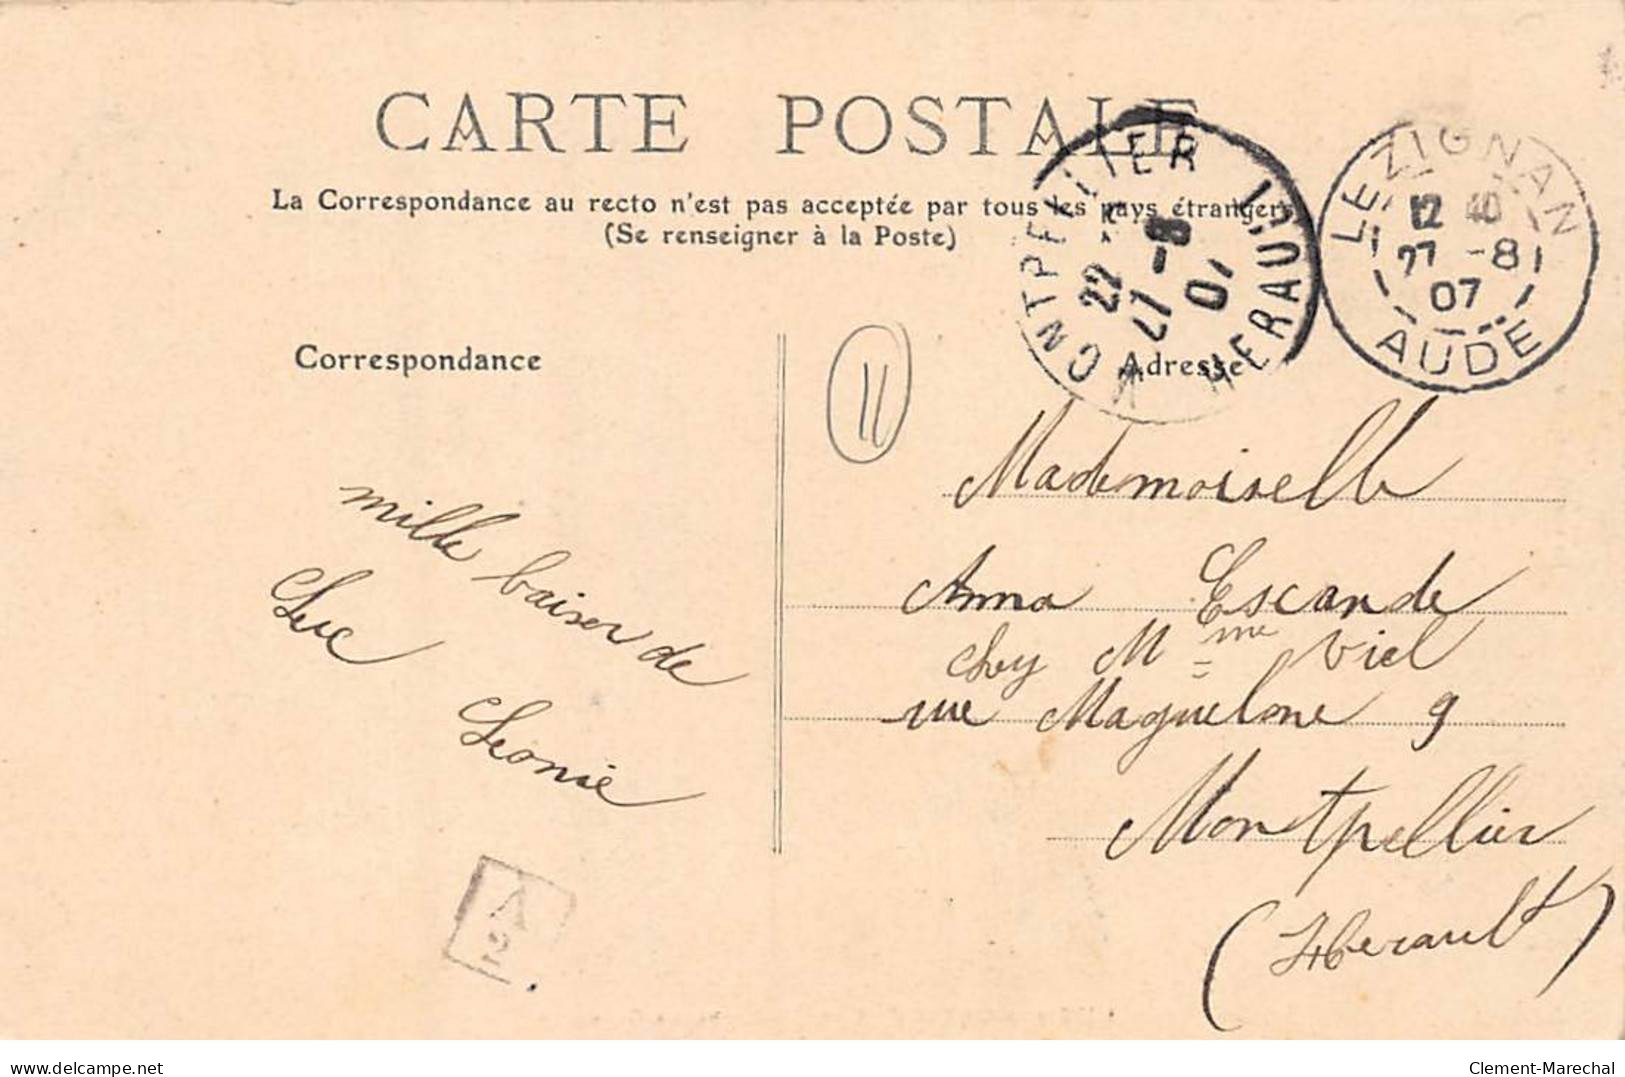 CARTE POSTALE
La Correspondance au recto n'est pas acceptée par tous les pays étrangers
(Se renseigner à la Poste)
MONTPELLIER
22
27 -8
07
HERAULT
LEZIGNAN
12 40
27 -8
07
AUDE
Correspondance
Adresse
11
mille baiser de
Luc
Leonie
Mademoiselle
Anna Escande
chez Mme Viel
rue Maguelone 9
Montpellier
(Herault)
A
2
delcampe.net
Clement-Marechal